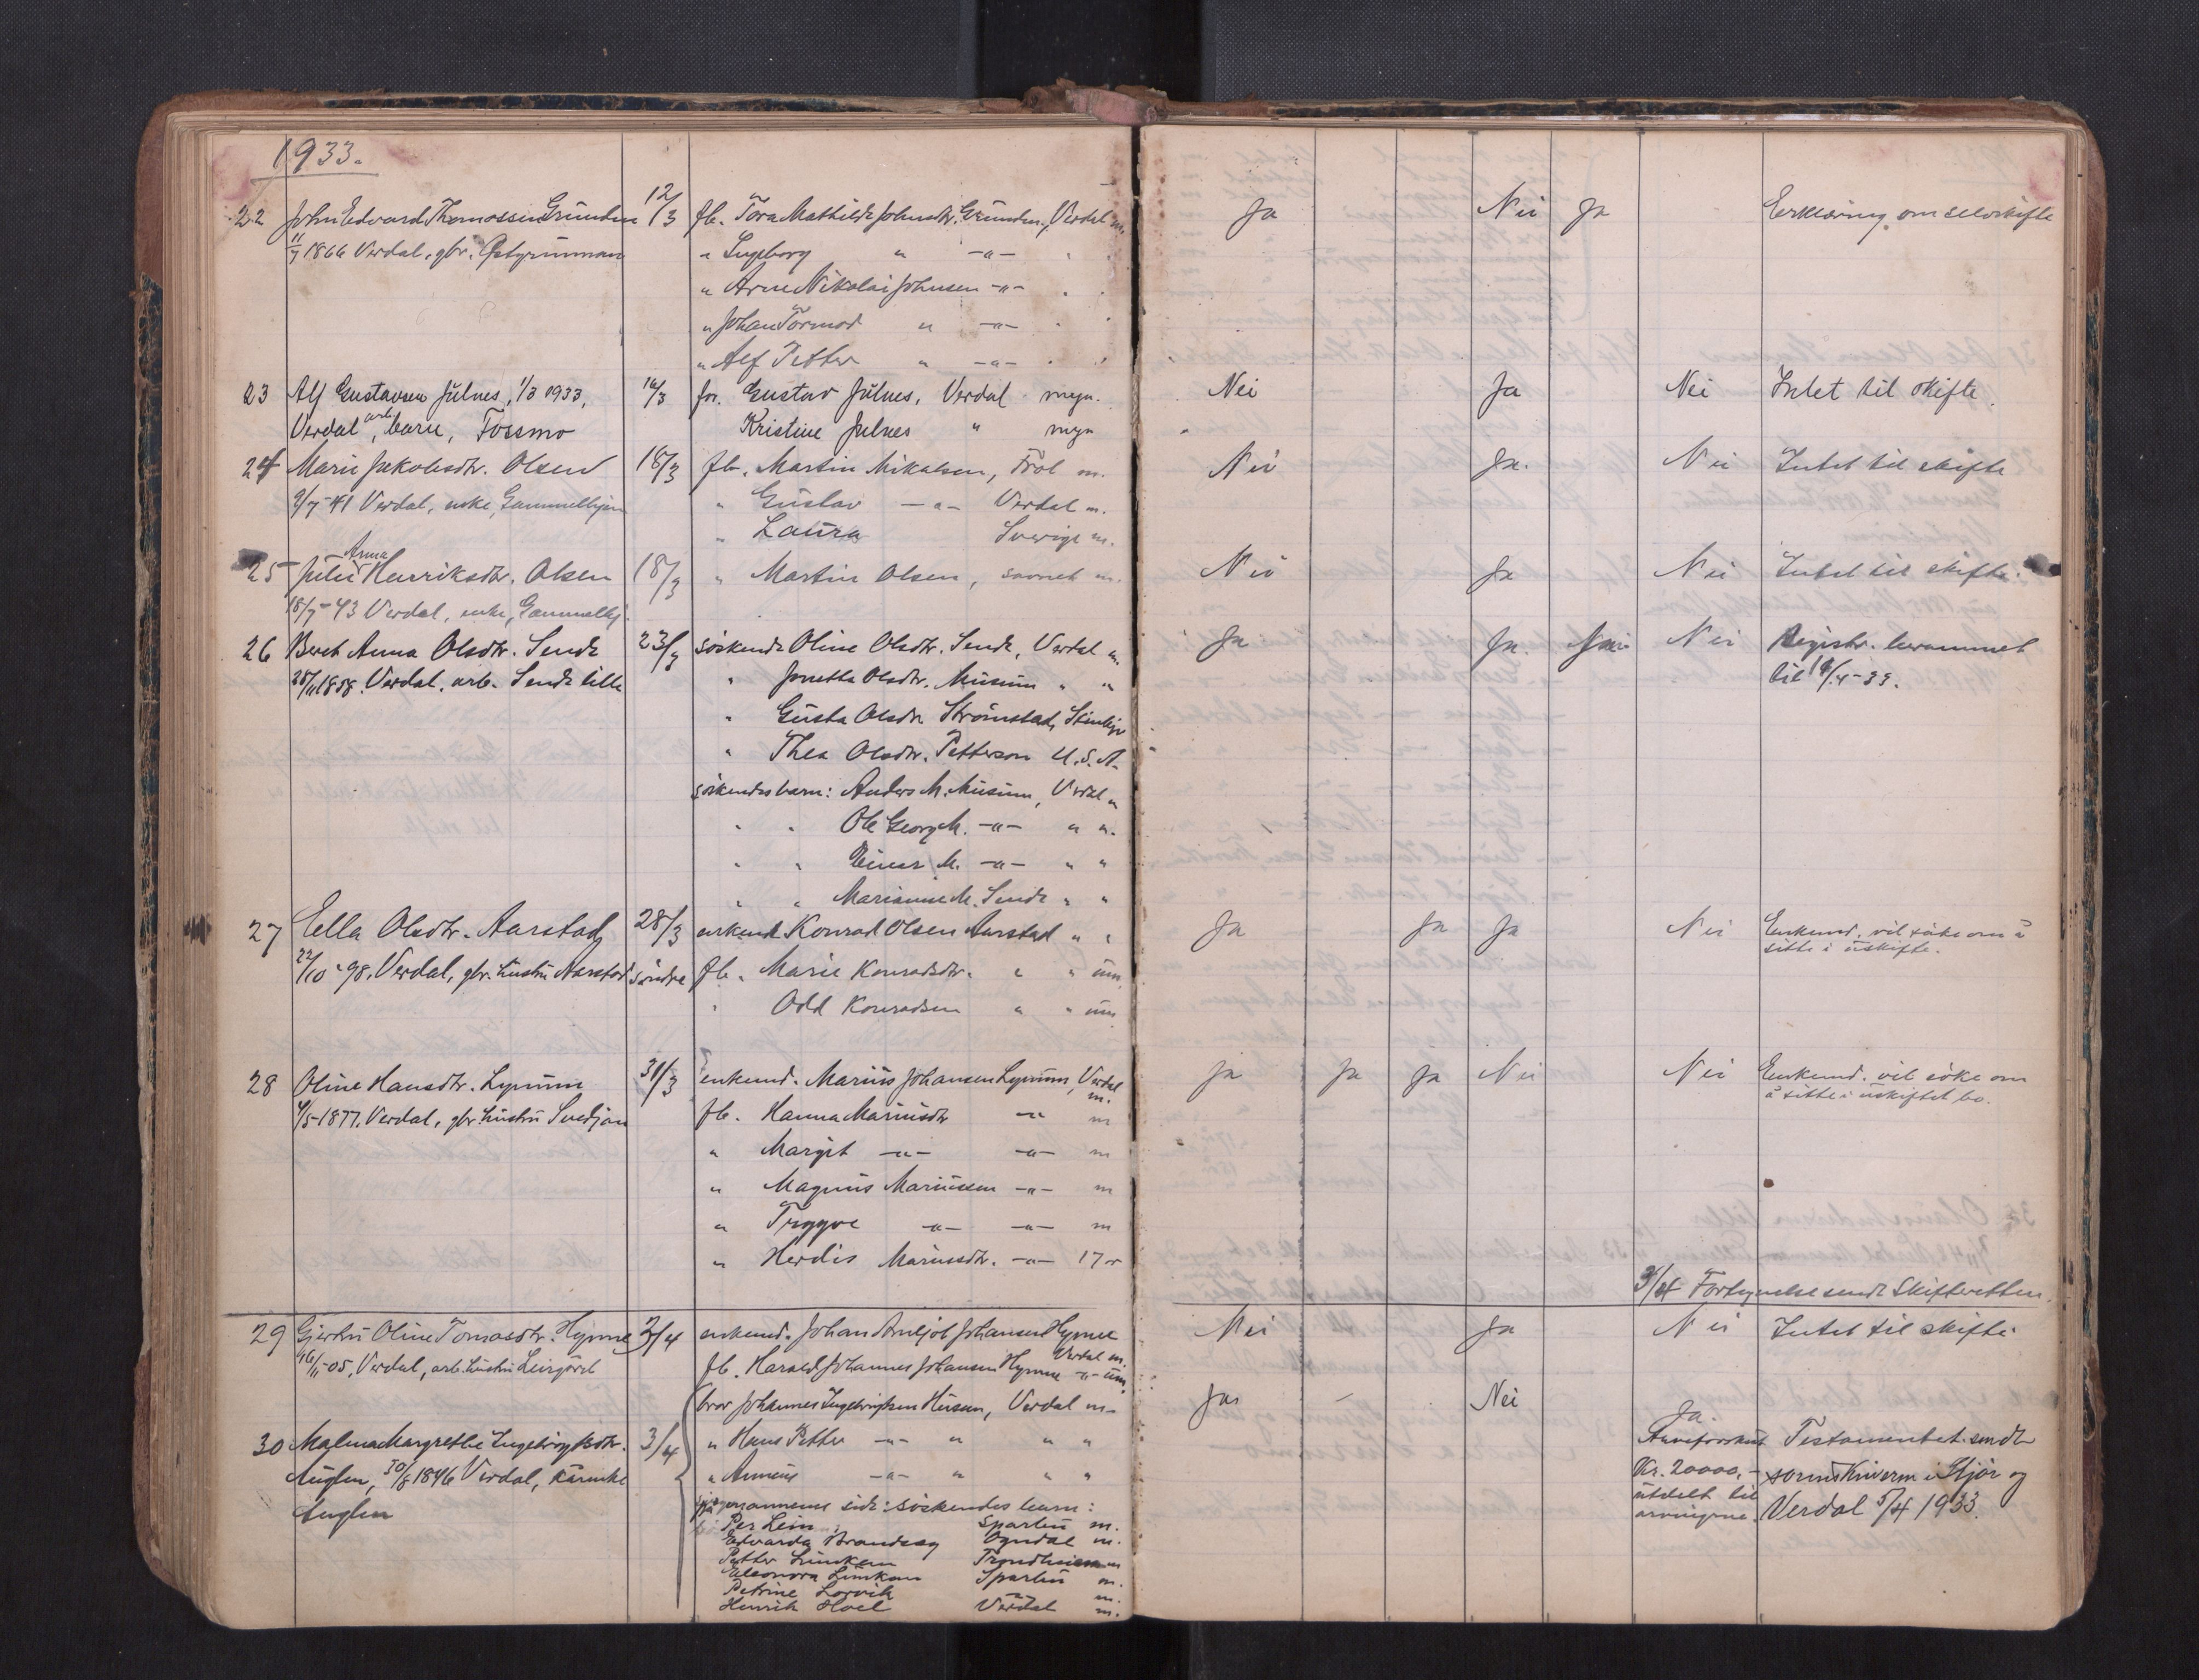 1933.
22 John Edvard Thomassen Grunden 12/3 fb. Tora Mathilde Johnsdtr. Grunden, Verdal m. Ja Nei Ja Erklæring om selvskifte
11/7 1866 Verdal, gbr. Østgrunnan " Ingeborg " -"-
" Arne Nikolai Johnsen -"-
" Johan Tormod " -"-
" Alf Petter " -"-
23 Alf Gustavsen Julnes, 1/3 1933, 16/3 for. Gustav Julnes, Verdal myn. Nei Ja Nei Intet til skifte.
Verdal, arb. barn, Fossmo Kristine Julnes " myn
24 Marie Jakobsdtr. Olsen 18/3 fb. Martin Mikalsen, Frol m. Nei Ja. Nei Intet til skifte
9/7-41 Verdal, enke, " Gustav -"- Verdal m.
" Laura Sverige m.
25 Julie Anna Henriksdtr. Olsen 18/3 " Martin Olsen, savnet m. Nei Ja Nei Intet til skifte.
18/7-43 Verdal, enke,
26 Beret Anna Olsdtr. Sende 23/3 søskende Oline Olsdtr. Sende, Verdal m. Ja Ja. Nei Registr. berammet
25/11 1858. Verdal. arb. Sende lille " Jonetta Olsdtr. Musum " " til 18/4-33.
" Gusta Olsdtr. Strømstad, Stenkjer
" Thea Olsdtr. Petterson U.S.A.
søskendesbarn: Anders M. Musum, Verdal m
" " Ole Georg M. -"- " m.
" " Einar M. -"- " "
" " Marianne M. Sende " "
27 Ella Olsdtr. Aarstad 28/3 enkemd. Konrad Olsen Aarstad " " Ja Ja Ja Nei Enkemd. vil søke om å
22/10-98. Verdal, gbr. hustru Aarstad søndre fb. Marie Konradsdtr. " " um. sitte i uskifte.
" Odd Konradsen " " um
28 Oline Hansdtr. Lynum 31/3 enkemd. Marius Johansen Lynum, Verdal m. Ja Ja Ja Nei Nei Enkemd. vil søke om
4/5-1877. Verdal, gbr. hustru Svedjan fb. Hanna Mariusdtr -"- m å sitte i uskiftet bo.
" Margit -"- -"- m
" Magnus Mariussen -"- m
" Trygve -"- -"- m
" Herdis Mariusdtr. -"- 17 år
3/4 Fortegnelse sendt Skifteretten.
29 Gjertru Oline Tomasdtr. Hynne 2/4 enkemd. Johan Arnljot Johansen Hynne Verdal m. Nei Ja Nei Intet til skifte.
16/11-05, Verdal, arb. hustru fb. Harald Johannes Johansen Hynne -"- um.
bror Johannes Ingebrigtsen Husan, Verdal m. Ja - Nei
30 Malina Margrethe Ingebrigtsdtr. 3/4 " Hans Petter -"- " " " Ja. Testamentet sendt
Auglen, 30/8 1846 Verdal, kårenke " Arneus -"- " " " Arveforskud Kr. 20000,- sorenskriveren i Stjør og
Auglen utdelt til arvingene. Verdal 5/4 1933.
på mannens side: søskendes barn:
Per Lein Sparbu m.
Edvarda Brandseg Ogndal m.
Petter Trondheim m
Eleonora Sparbu m.
Petrine Lorvik -"- m.
Henrik Hoel Verdal m.